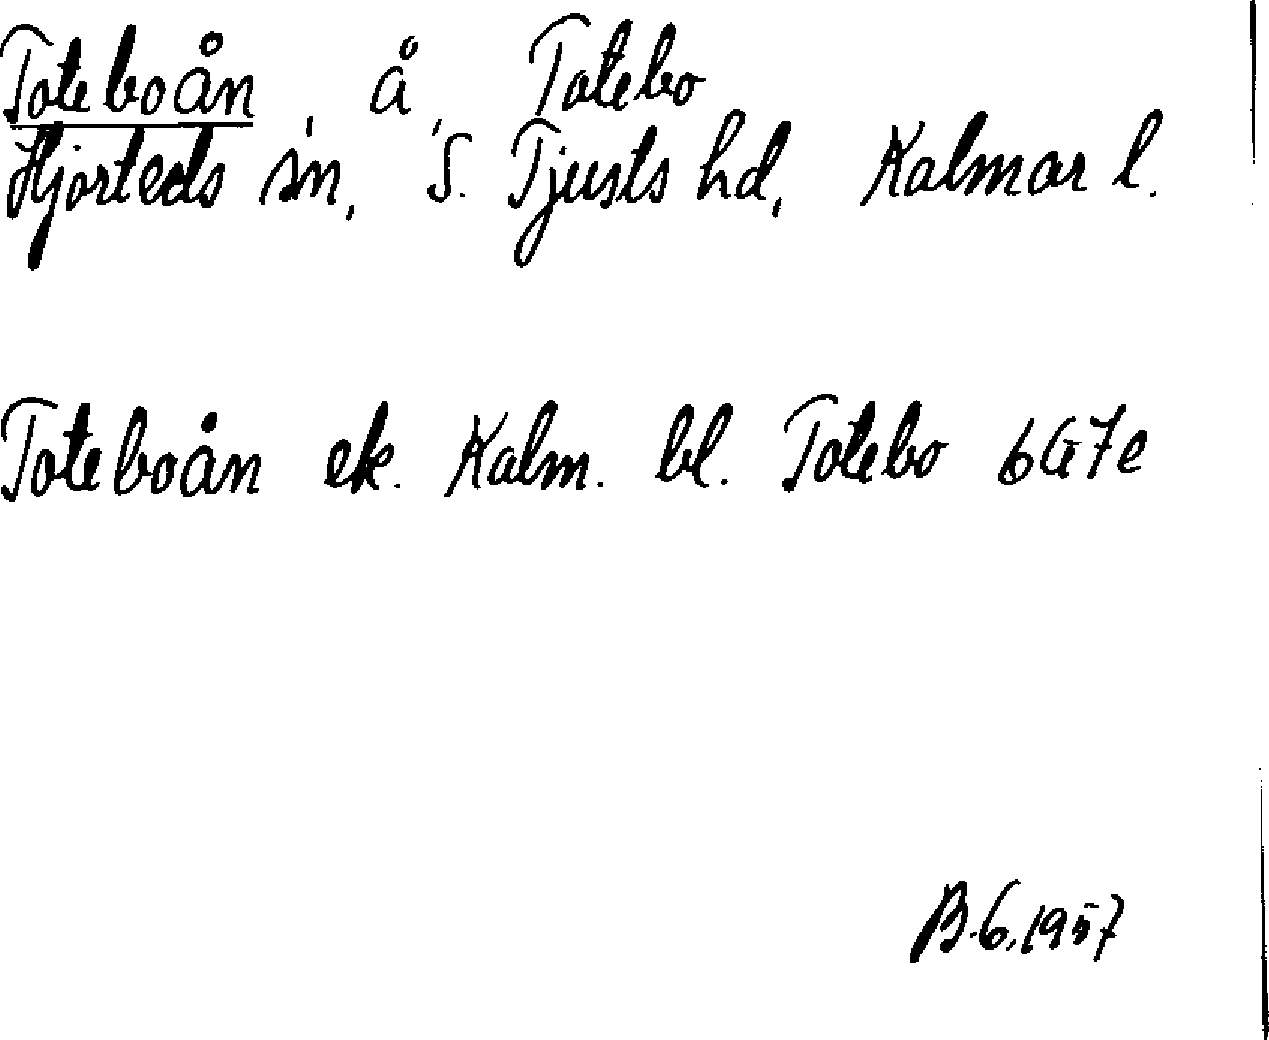 Toteboån, å, Totebo
Hjorteds sn, S. Tjusts hd, Kalmar l.
Toteboån ek. Kalm. bl. Totebo 6G7e
B.G.1957